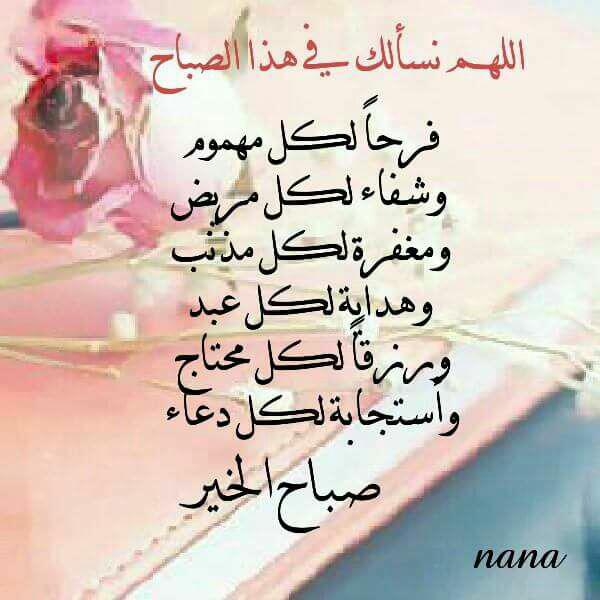 اللهم نسألك في هذا الصباح
فرحاً لكل مهموم
وشفاء لكل مريض
ومغفرة لكل مذنب
وهداية لكل عبد
ورزقاً لكل محتاج
وأستجابة لكل دعاء
صباح الخير
nana